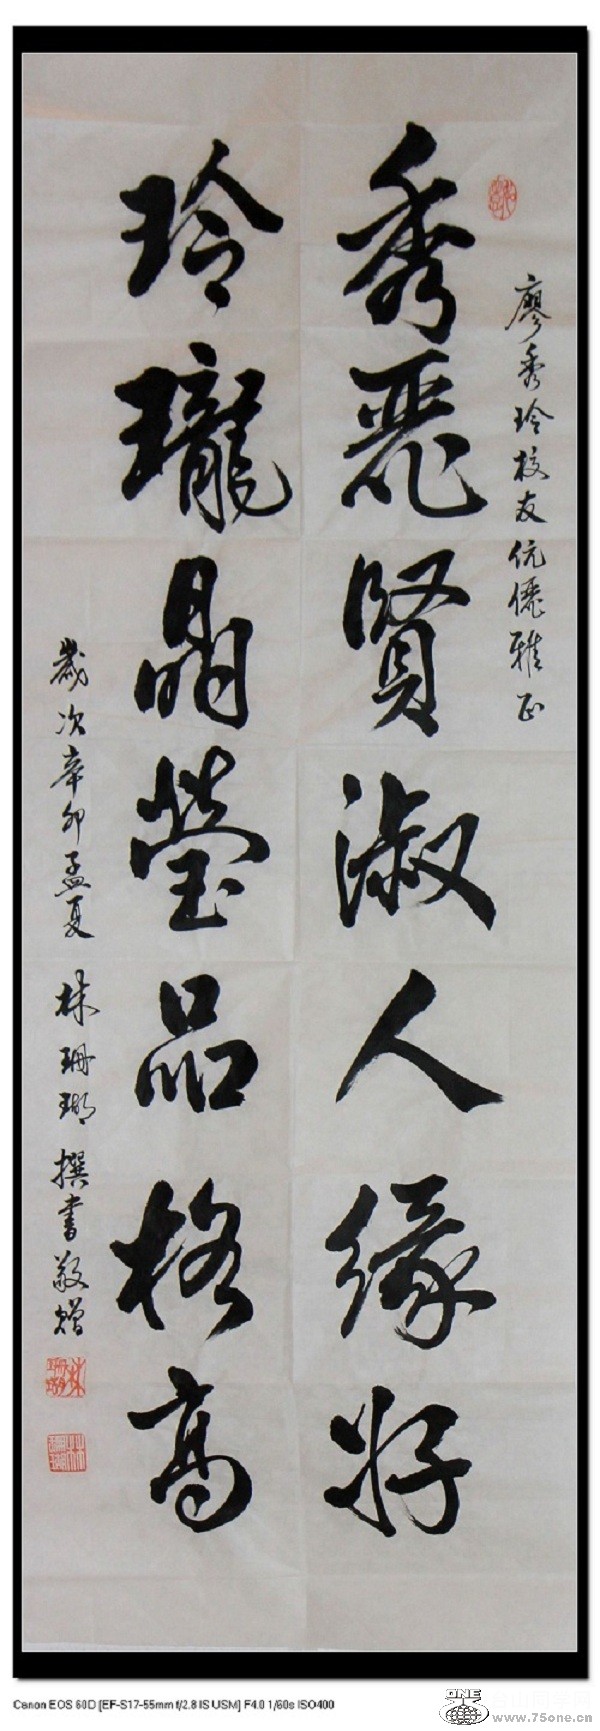 廖秀玲校友伉儷雅正
秀麗賢淑人緣好
玲瓏晶瑩品格高
歲次辛卯孟夏 林珊瑚 撰書敬贈
Canon EOS 60D [EF-S17-55mm f/2.8 IS USM] F4.0 1/60s ISO400
ONE
www.75one.cn